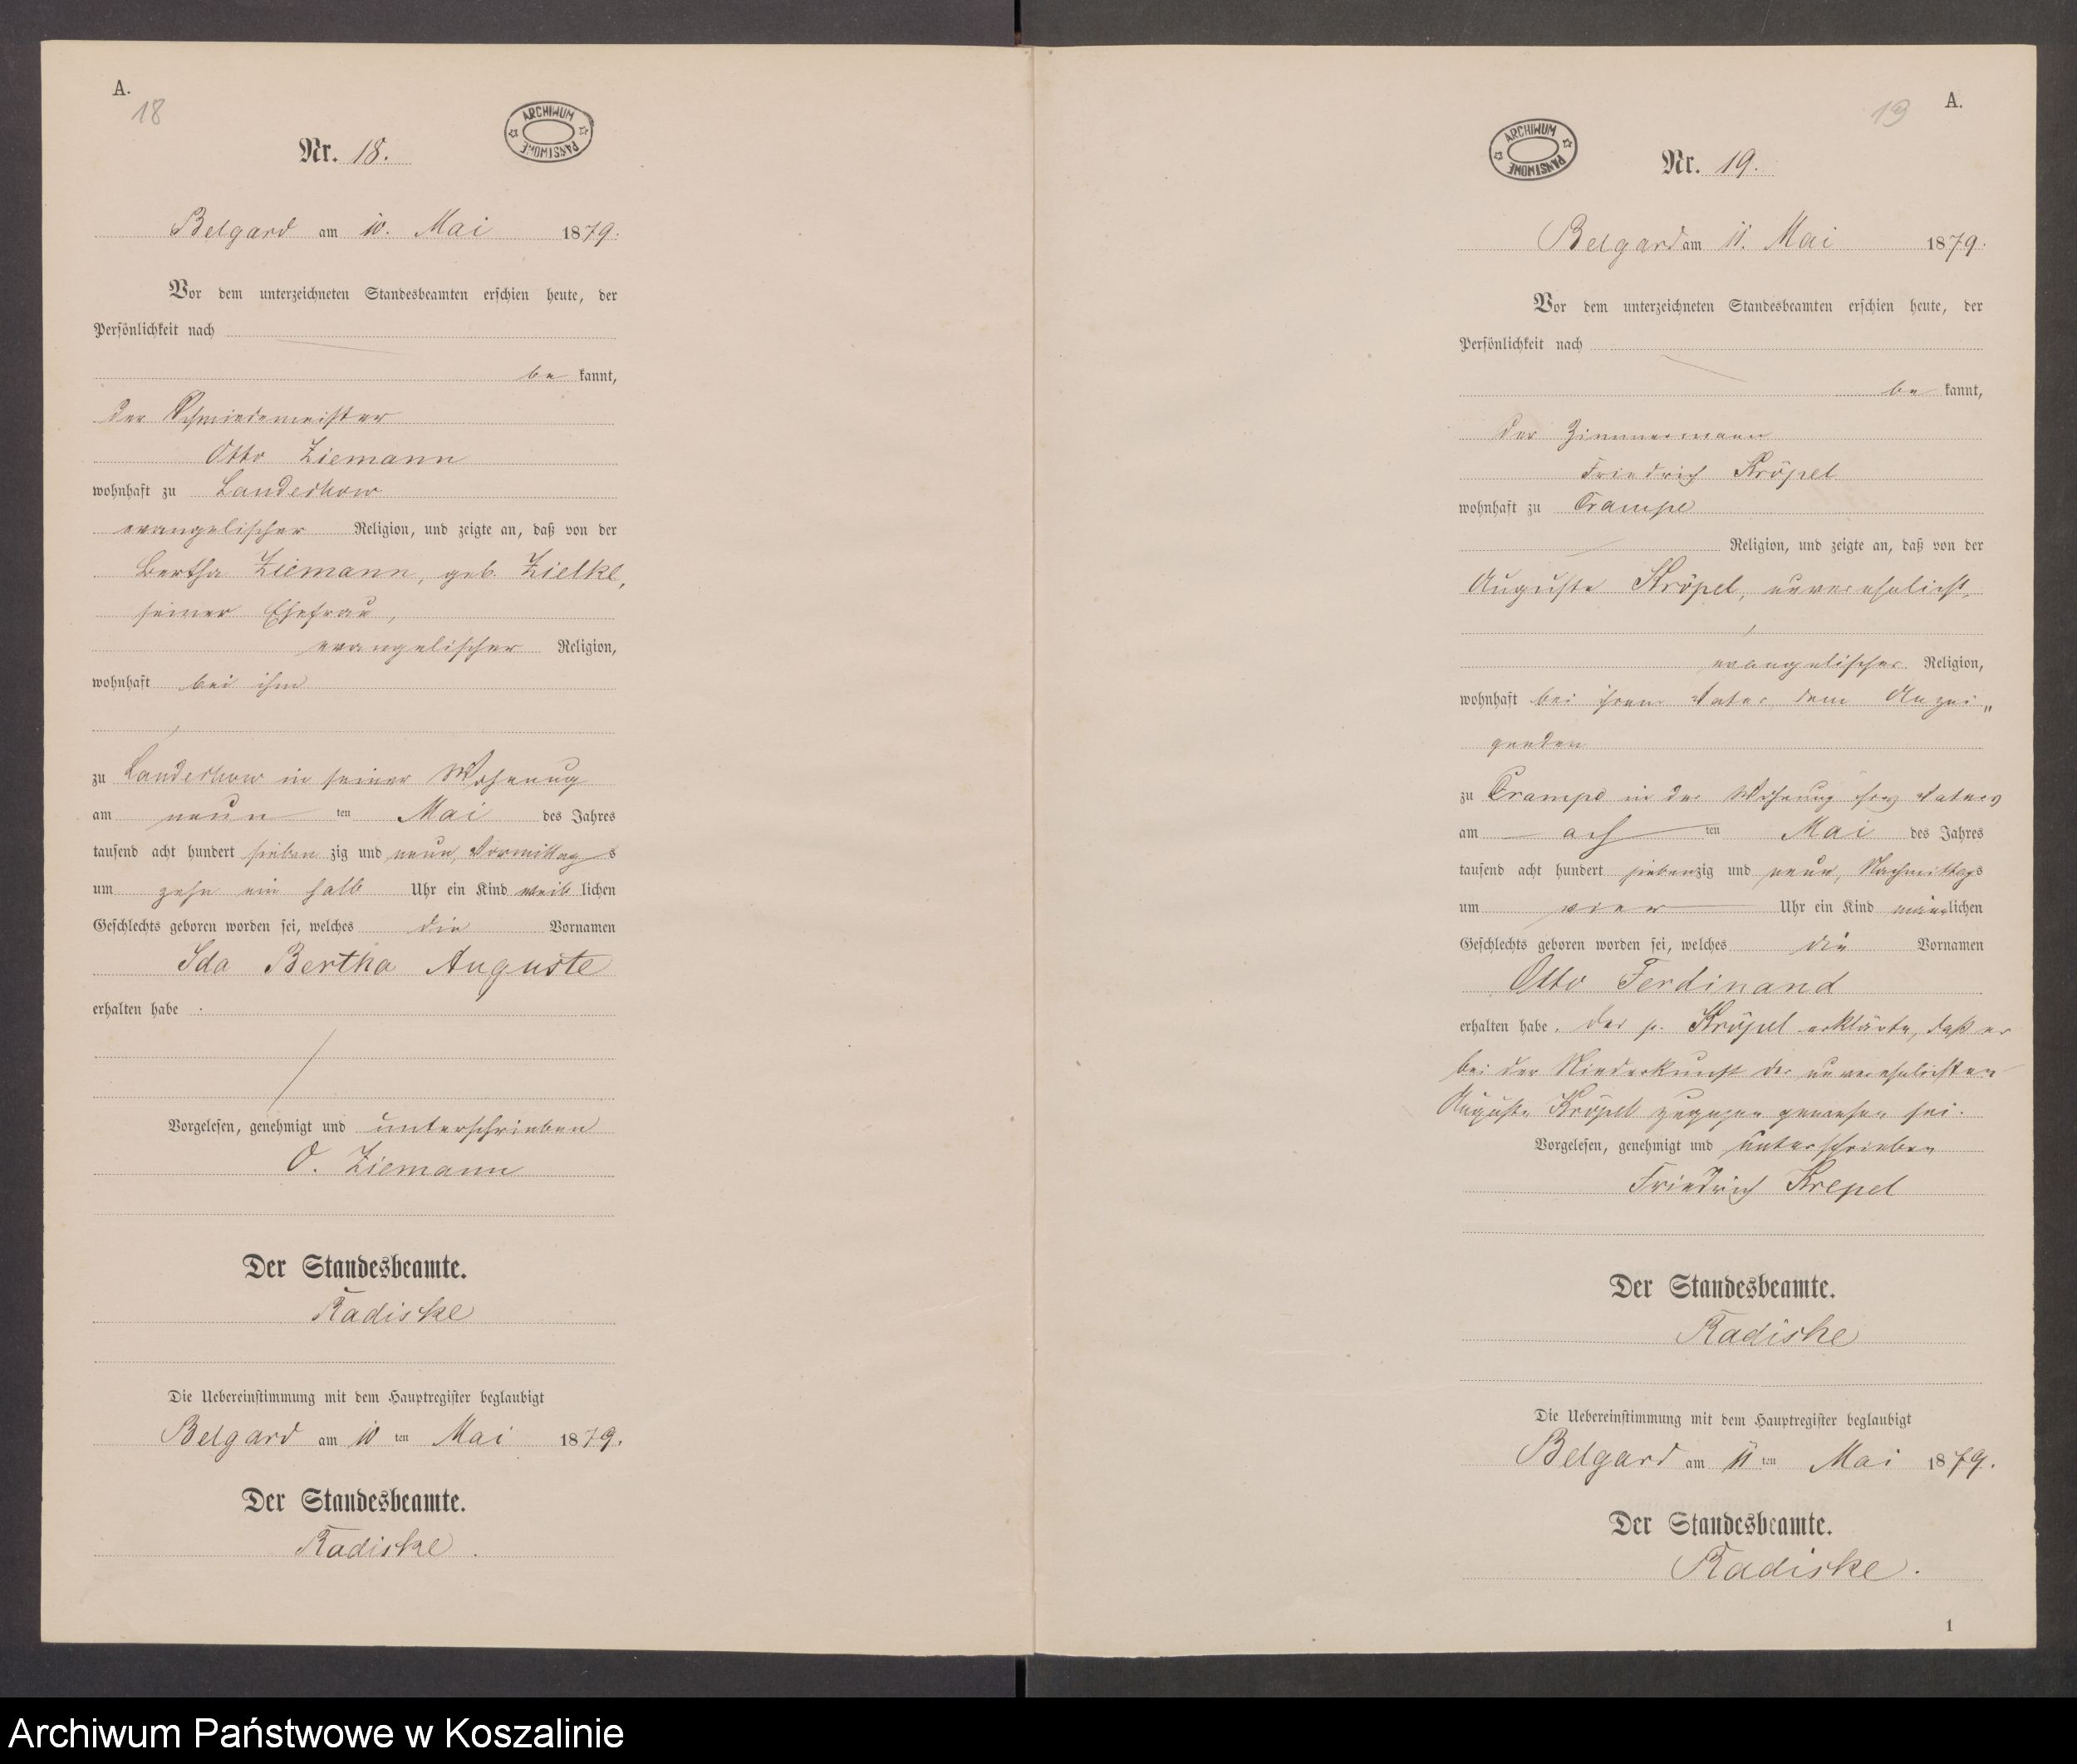 A.
18
Nr. 18.
ARCHIWUM PAŃSTWOWE
Belgard am 10. Mai 1879.
Vor dem unterzeichneten Standesbeamten erschien heute, der
Persönlichkeit nach
be kannt,
der Schmiedemeister
Otto Ziemann
wohnhaft zu
evangelischer Religion, und zeigte an, daß von der
Bertha Ziemann, geb. Zielke,
seiner Ehefrau,
evangelischer Religion,
wohnhaft bei ihm
zu in seiner Wohnung
am neun ten Mai des Jahres
tausend acht hundert sieben zig und neun, Vormittag s
um zehn ein halb Uhr ein Kind weib lichen
Geschlechts geboren worden sei, welches die Vornamen
Ida Bertha Auguste
erhalten habe .
Vorgelesen, genehmigt und unterschrieben
O. Ziemann
Der Standesbeamte.
Radiske
Die Uebereinstimmung mit dem Hauptregister beglaubigt
Belgard am 10 ten Mai 1879.
Der Standesbeamte.
Radiske.
19
A.
ARCHIWUM PAŃSTWOWE
Nr. 19.
Belgard am 11. Mai 1879.
Vor dem unterzeichneten Standesbeamten erschien heute, der
Persönlichkeit nach
be kannt,
der Zimmermann
Friedrich Kröpel
wohnhaft zu Crampe
Religion, und zeigte an, daß von der
Auguste Kröpel, unverehelicht,
evangelischer Religion,
wohnhaft bei ihrem Vater, dem Anzei„
genden
zu Crampe in der Wohnung ihres Vaters
am ach ten Mai des Jahres
tausend acht hundert siebenzig und neun, Nachmittags
um vier Uhr ein Kind männlichen
Geschlechts geboren worden sei, welches die Vornamen
Otto Ferdinand
erhalten habe. Der p. Kröpel erklärte, daß er
bei der Niederkunft der unverehelichten
Auguste Kröpel zugegen gewesen sei.
Vorgelesen, genehmigt und unterschrieben
Friedrich Krepel
Der Standesbeamte.
Radiske
Die Uebereinstimmung mit dem Hauptregister beglaubigt
Belgard am 11 ten Mai 1879.
Der Standesbeamte.
Radiske.
1
Archiwum Państwowe w Koszalinie